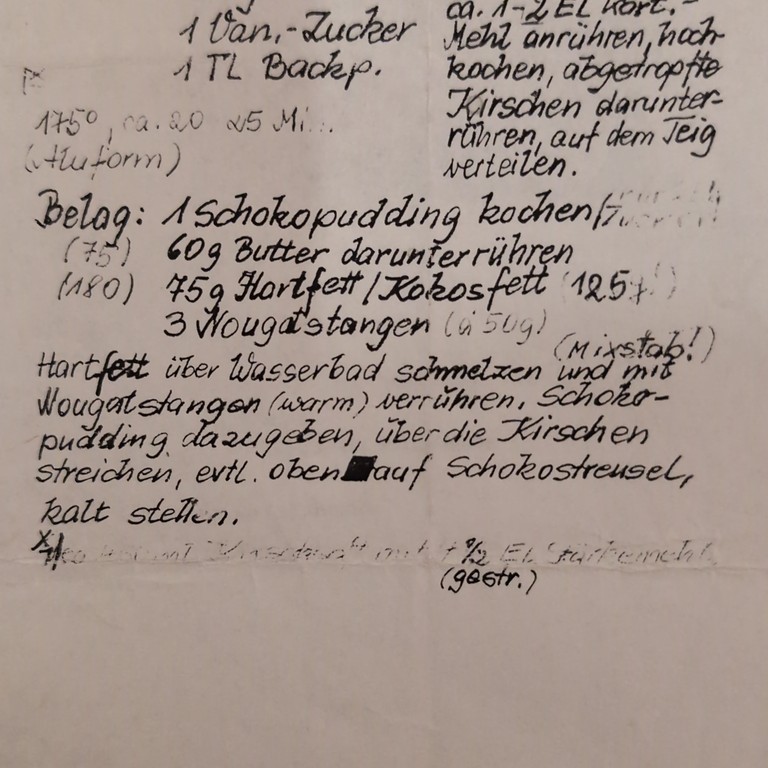 1 Van.-Zucker
1 TL Backp.
175°, ca. 20 25 Mi
(Aluform)
ca. 1-2 EL Kart.-
Mehl anrühren, hoch-
kochen, abgetropfte
Kirschen darunter-
rühren, auf dem Teig
verteilen.
Belag: 1 Schokopudding kochen/
(75) 60g Butter darunterrühren
(180) 75g Hartfett/Kokosfett (125g!)
3 Nougatstangen (à 50g)
(Mixstab!)
Hartfett über Wasserbad schmelzen und mit
Nougatstangen (warm) verrühren. Schoko-
pudding dazugeben, über die Kirschen
streichen, evtl. oben auf Schokostreusel,
kalt stellen.
ml Kirschsaft mit 1/2 EL Stärkemehl
(gestr.)